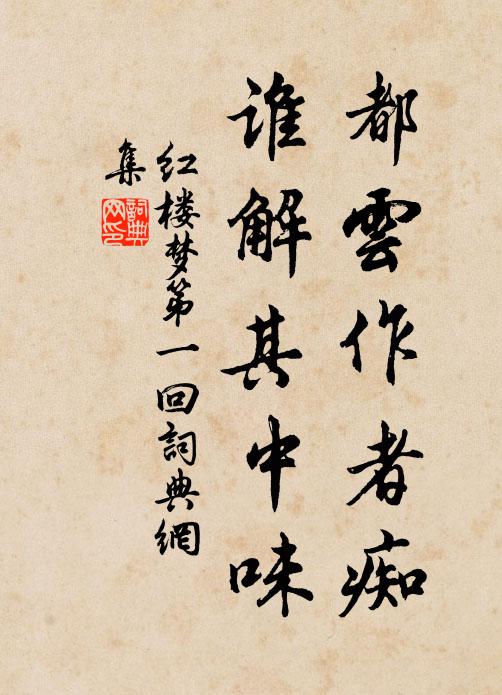 都雲作者痴
谁解其中味
红楼梦第一回詞典網
集
詞典网印